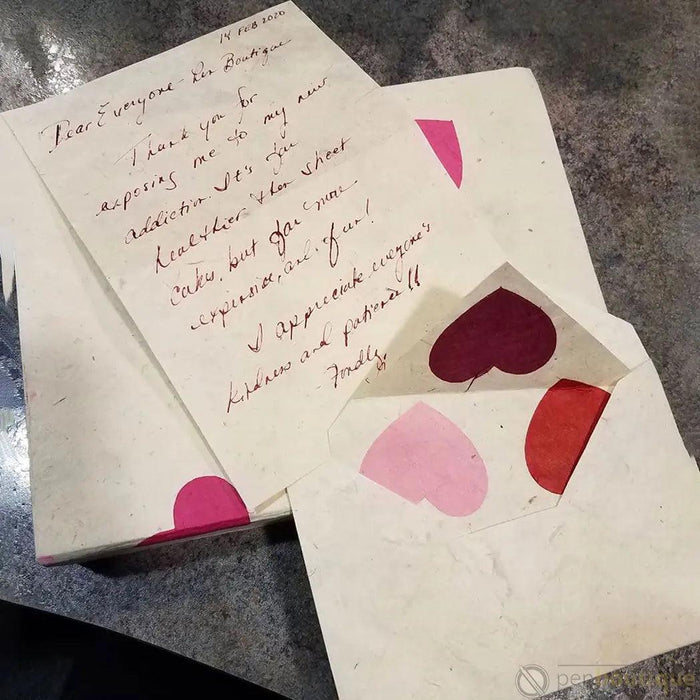 14 FEB 2020
Dear Everyone - Pen Boutique
Thank you for
exposing me to my new
addiction. It's far
healthier than sheet
cakes, but far more
expensive, and fun!
I appreciate everyone's
kindness and patience!!
Fondly,
penboutique